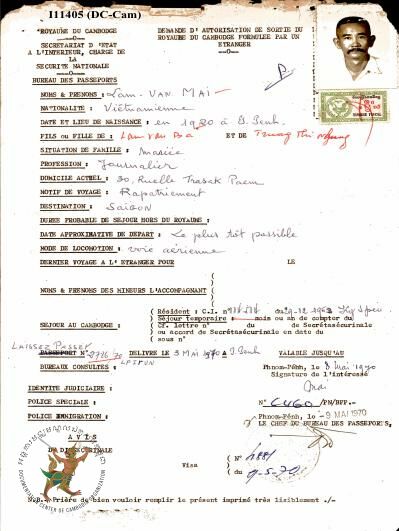 I11405 (DC-Cam)
ROYAUME DU CAMBODGE
SECRETARIAT D'ETAT
A L'INTERIEUR, CHARGE DE
LA
SECURITE NATIONALE
BUREAU DES PASSEPORTS
DEMANDE D'AUTORISATION DE SORTIE DU
ROYAUME DU CAMBODGE FORMULEE PAR UN
ETRANGER
NOMS & PRENOMS : Lam-VAN MAI
NATIONALITE : Viêtnamienne
DATE ET LIEU DE NAISSANCE : en 1920 à P. Penh.
FILS ou FILLE DE : Lam Van Ba ET DE Truong Thi Nhung
SITUATION DE FAMILLE : Mariée
PROFESSION : Journalier
DOMICILE ACTUEL : 30, Ruelle Trasak Paem
MOTIF DE VOYAGE : Rapatriement
DESTINATION : SAIGON
DUREE PROBABLE DE SEJOUR HORS DU ROYAUME :
DATE APPROXIMATIVE DE DEPART : Le plus tôt possible
MODE DE LOCOMOTION : voie aérienne
DERNIER VOYAGE A L'ETRANGER POUR LE
NOMS & PRENOMS DES MINEURS L'ACCOMPAGNANT
SEJOUR AU CAMBODGE :
( Résident : C.I. n° du 9-12-1963
( Séjour temporaire : mois ou ab de compter du
( Cf. lettre n° du de Secrétasécurinale
( ou accord de Secrétasécurinale en date du
( sous n°
LAISSEZ PASSER
PASSEPORT N° 2786/70 DELIVRE LE 3 MAI 1970 A P. Penh VALABLE JUSQU'AU
BUREAUX CONSULTES :
Phnom-Pénh, le 8 Mai 1970
Signature de l'intéressé
Mai
IDENTITE JUDICIAIRE :
POLICE SPECIALE :
POLICE IMMIGRATION :
N° 6460/PN/BPP.-
Phnom-Pénh, le -9 MAI 1970
LE CHEF DU BUREAU DES PASSEPORTS,
AVIS
Visa
( N° 4881
( du 9-5-70
DOCUMENTATION CENTER OF CAMBODIA ORGANIZATION
N.B.- Prière de bien vouloir remplir le présent imprimé très lisiblement ./-